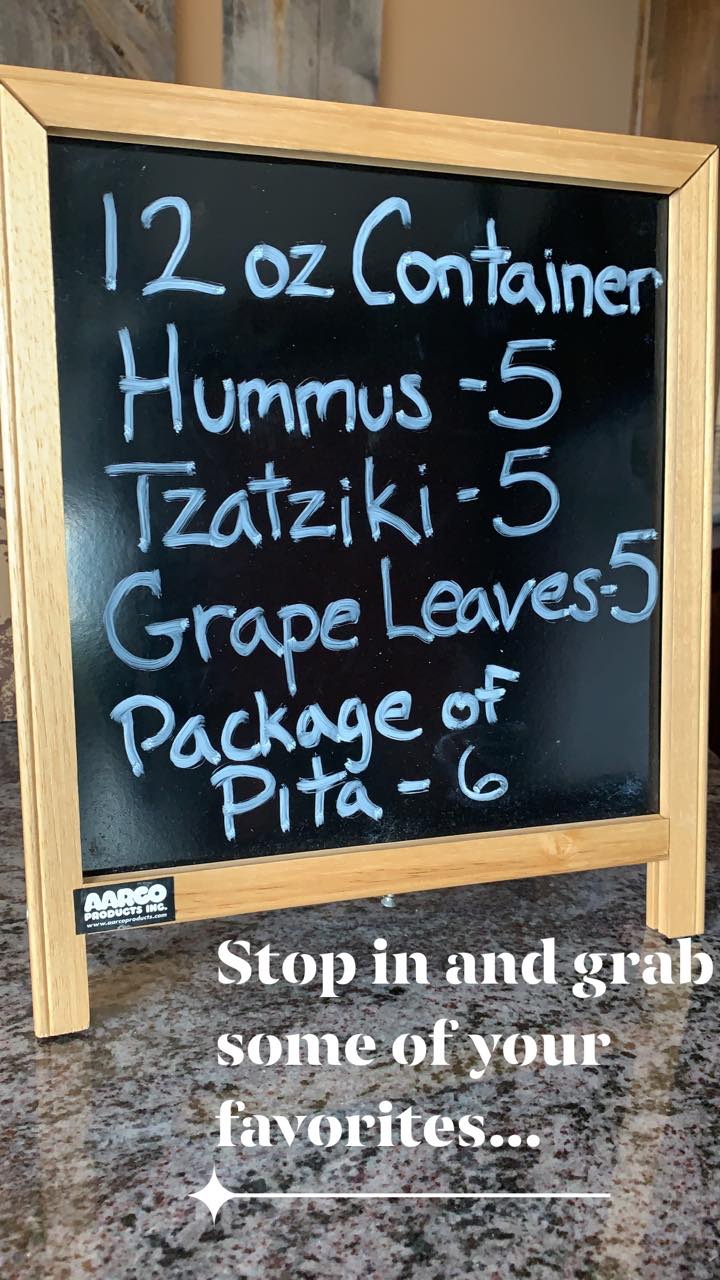 12 oz Container
Hummus - 5
Tzatziki - 5
Grape Leaves - 5
Package of
Pita - 6
AARCO
PRODUCTS INC.
www.aarcoproducts.com
Stop in and grab
some of your
favorites...